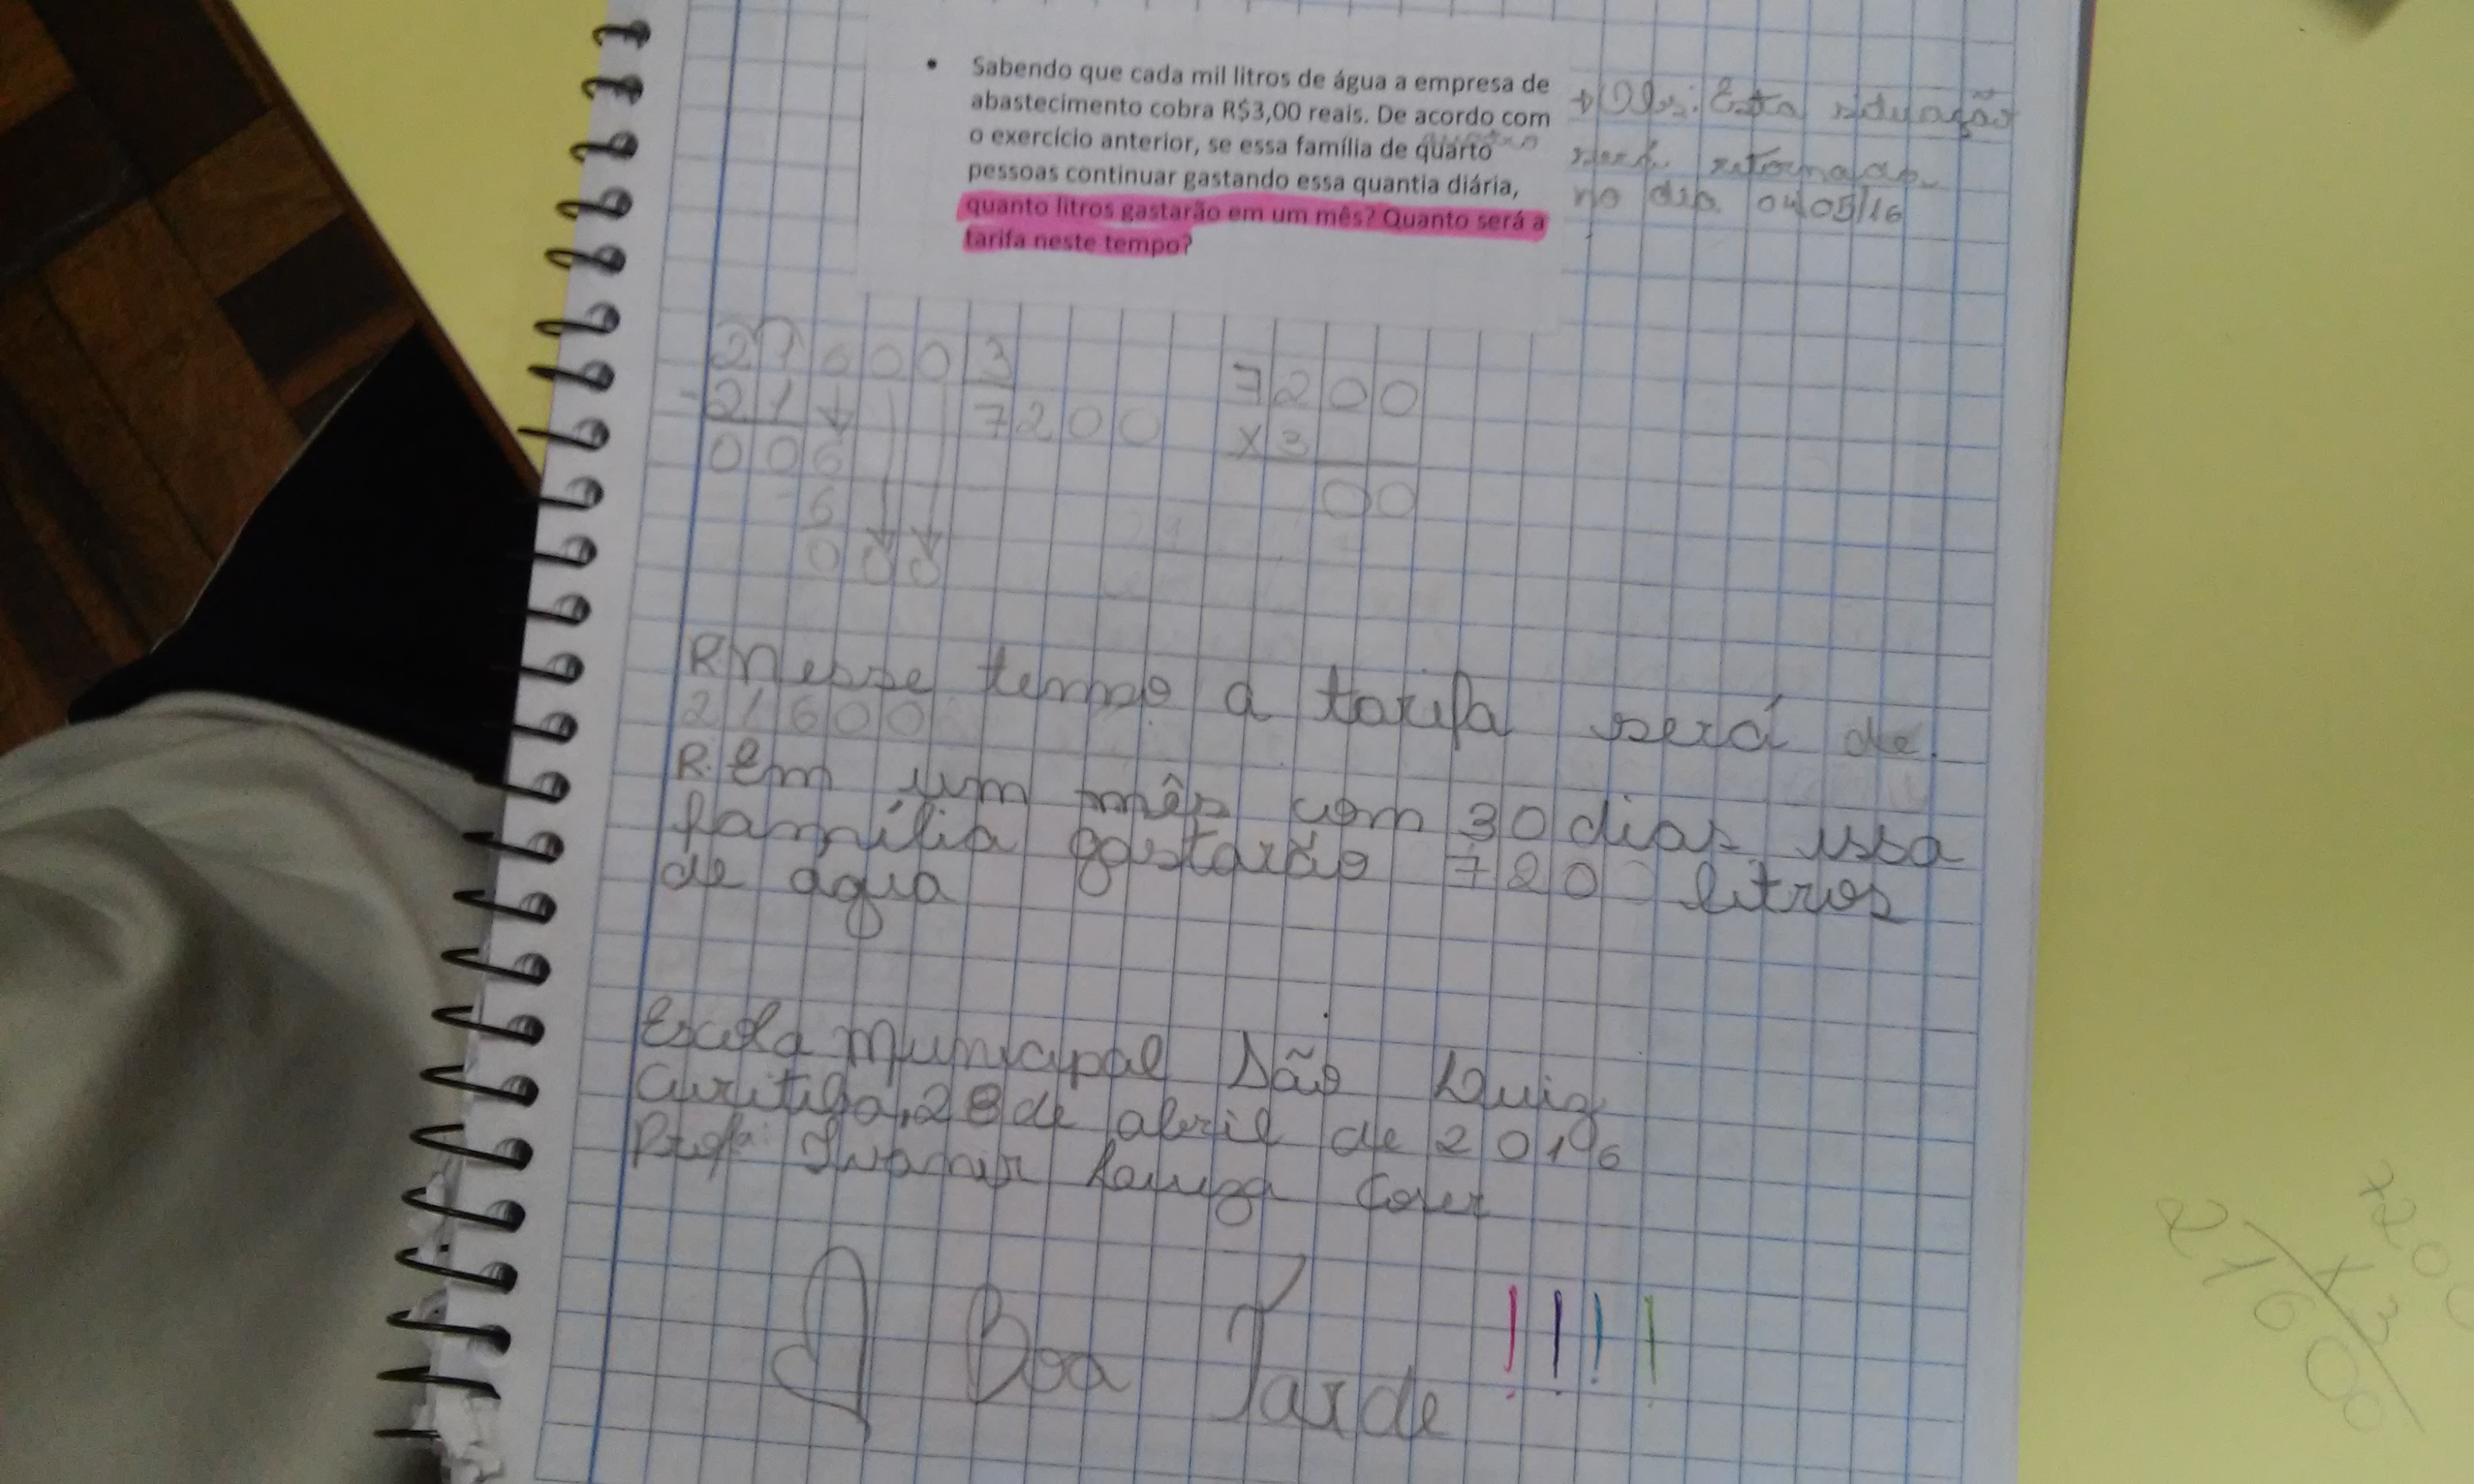 • Sabendo que cada mil litros de água a empresa de
abastecimento cobra R$3,00 reais. De acordo com
o exercício anterior, se essa família de quarto
pessoas continuar gastando essa quantia diária,
quanto litros gastarão em um mês? Quanto será a
tarifa neste tempo?
→ Obs: Esta situação
será retomada
no dia 04/05/16
27600 3
-21 7200
006
6
000
7200
x3
00
R Nesse tempo a tarifa será de
21600
R. Em um mês com 30 dias essa
família gastarão 720 litros
de água
Escola Municipal São Luiz
Curitiba, 28 de abril de 2016
Profª: Ivanir
Boa Tarde !!!!
7200
x3
21600